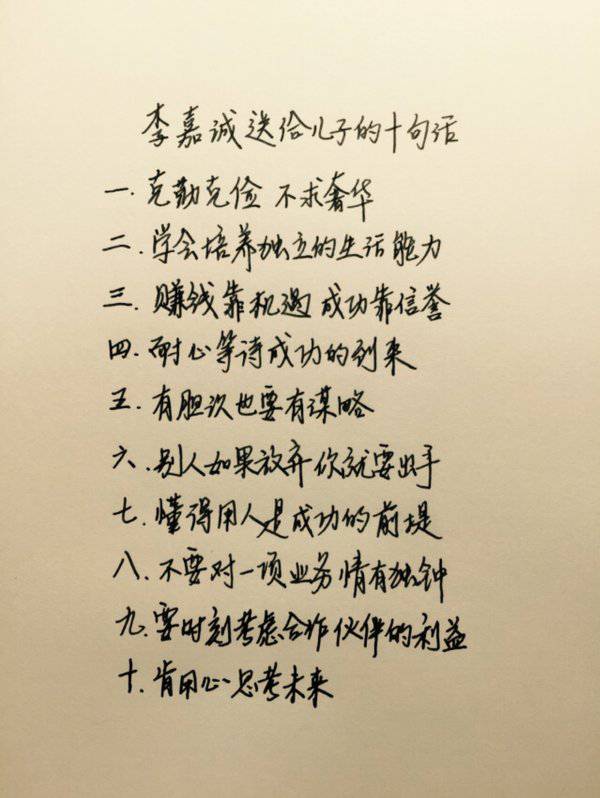 李嘉诚送给儿子的十句话
一.克勤克俭 不求奢华
二.学会培养独立的生活能力
三.赚钱靠机遇 成功靠信誉
四.耐心等待成功的到来
五.有胆识也要有谋略
六.别人如果放弃你就要出手
七.懂得用人是成功的前堤
八.不要对一项业务情有独钟
九.要时刻考虑合作伙伴的利益
十.肯用心思考未来